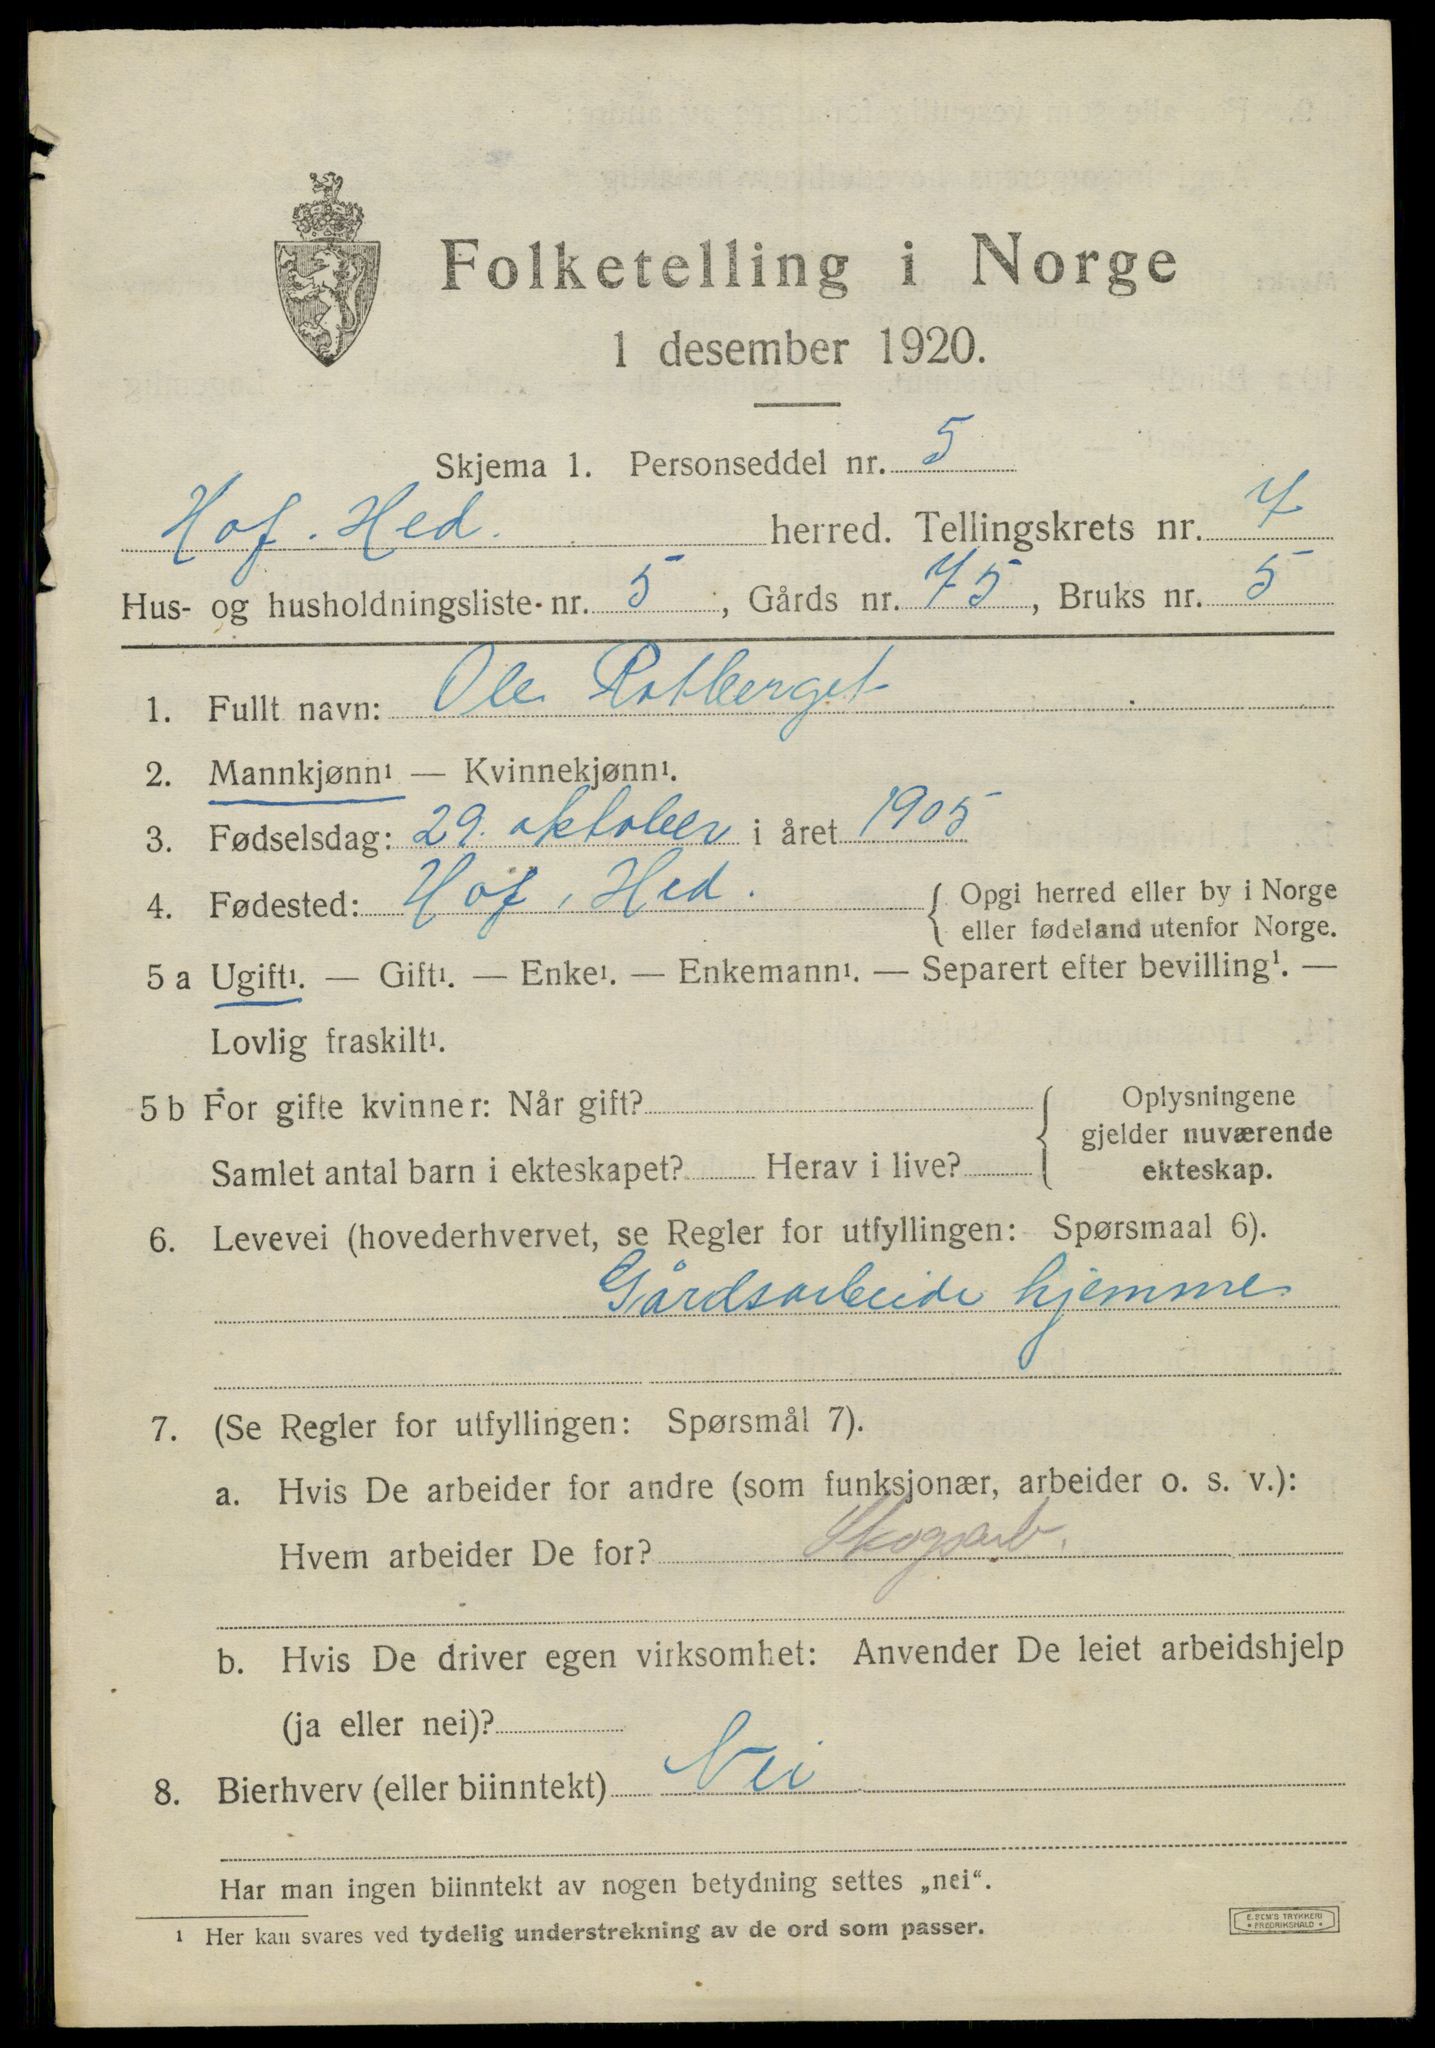 Folketelling i Norge
1 desember 1920.
Skjema 1. Personseddel nr. 5
Hof. Hed. herred. Tellingskrets nr. 7
Hus- og husholdningsliste nr. 5, Gårds nr. 75, Bruks nr. 5
1. Fullt navn: Ole Rotberget
2. Mannkjønn¹ — Kvinnekjønn¹.
3. Fødselsdag: 29. oktober i året 1905
4. Fødested: Hof, Hed. { Opgi herred eller by i Norge
eller fødeland utenfor Norge.
5 a Ugift¹. — Gift¹. — Enke¹. — Enkemann¹. — Separert efter bevilling¹. —
Lovlig fraskilt¹.
5 b For gifte kvinner: Når gift?
Samlet antal barn i ekteskapet? Herav i live?
{ Oplysningene
gjelder nuværende
ekteskap.
6. Levevei (hovederhvervet, se Regler for utfyllingen: Spørsmaal 6).
Gårdsarbeide hjemme
7. (Se Regler for utfyllingen: Spørsmål 7).
a. Hvis De arbeider for andre (som funksjonær, arbeider o. s. v.):
Hvem arbeider De for? Skogsarb.
b. Hvis De driver egen virksomhet: Anvender De leiet arbeidshjelp
(ja eller nei)?
8. Bierhverv (eller biinntekt) Nei
Har man ingen biinntekt av nogen betydning settes „nei“.
¹ Her kan svares ved tydelig understrekning av de ord som passer.
E. SEM'S TRYKKERI
• FREDRIKSHALD •